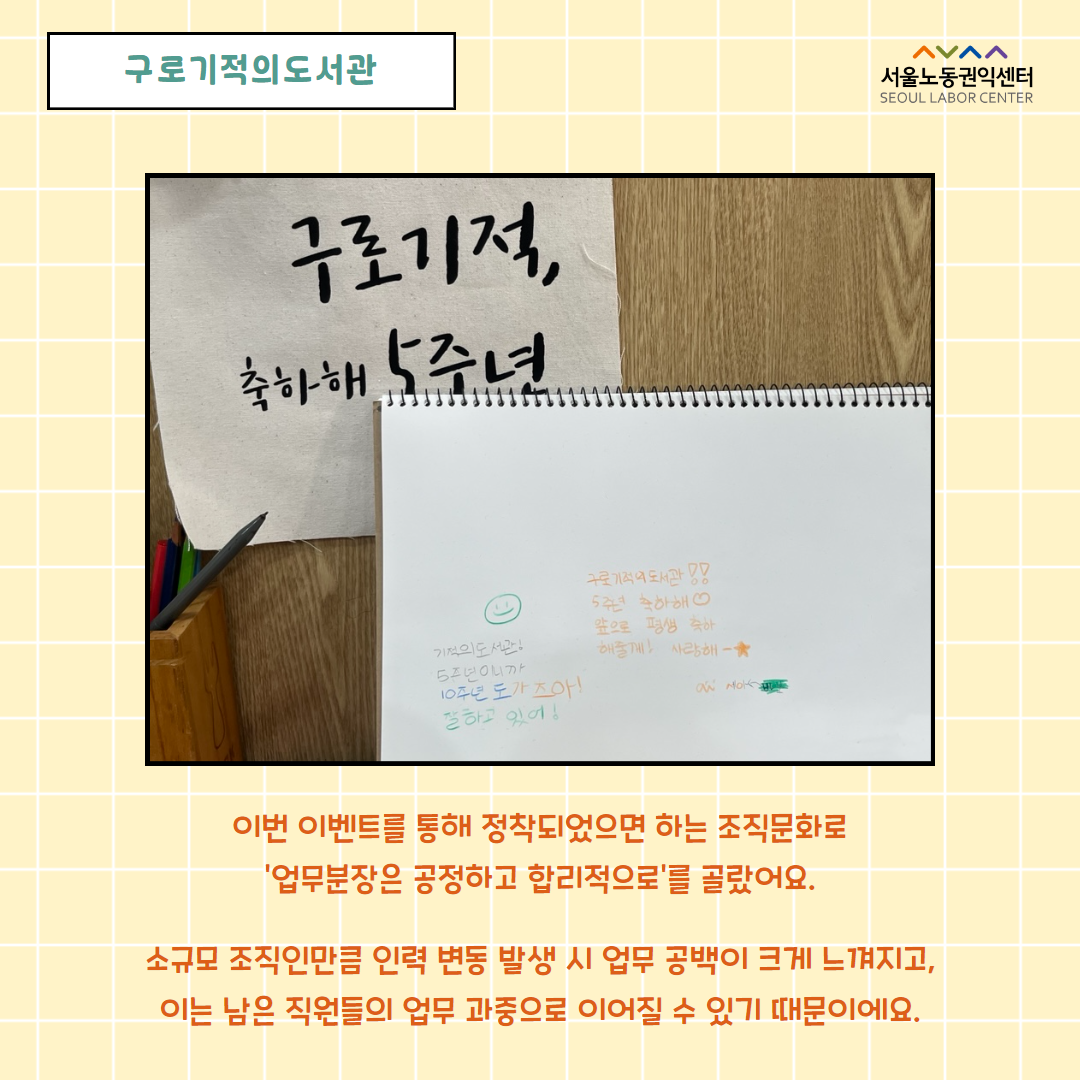 구로기적의도서관
서울노동권익센터
SEOUL LABOR CENTER
구로기적,
축하해 5주년
기적의도서관!
5주년이니까
10주년 도 가즈아!
잘하고 있어!
구로기적의도서관!!
5주년 축하해♡
앞으로 평생 축하
해줄게! 사랑해-★
이번 이벤트를 통해 정착되었으면 하는 조직문화로
'업무분장은 공정하고 합리적으로'를 골랐어요.
소규모 조직인만큼 인력 변동 발생 시 업무 공백이 크게 느껴지고,
이는 남은 직원들의 업무 과중으로 이어질 수 있기 때문이에요.